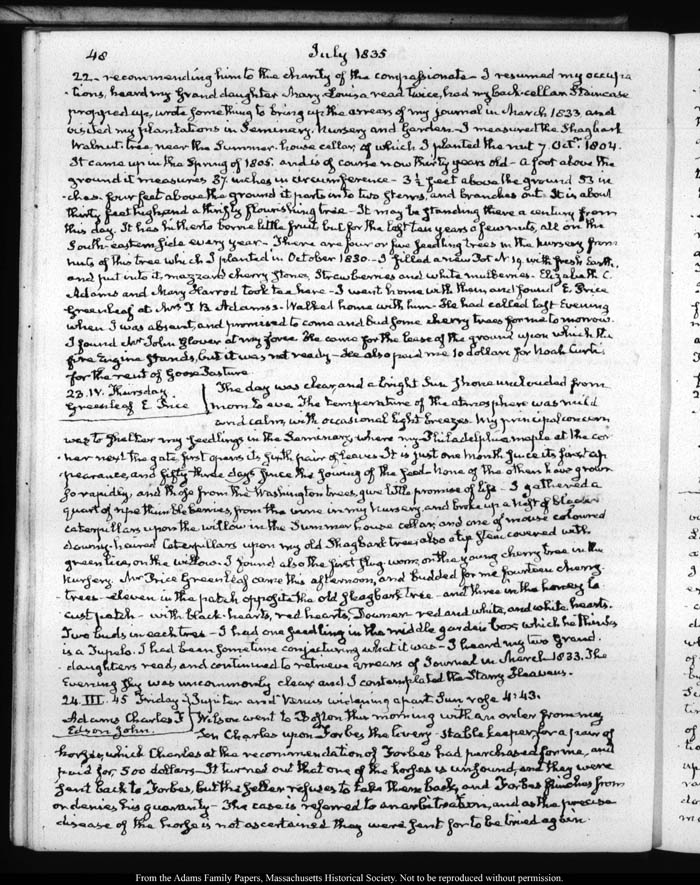 48 July 1835
22 - recommending him to the charity of the compassionate - I resumed my occupa
-tions, heard my Grand daughter Mary Louisa read twice, had my back-cellar Staircase
propped up, wrote something to bring up the arrears of my journal in March 1833, and
visited my plantations in Seminary, Nursery and Garden - I measured the Shagbark
Walnut tree, near the Summer-house cellar, of which I planted the nut 7. Octr. 1804.
It came up in the Spring of 1805. and is of course now thirty years old - a foot above the
ground it measures 37 inches in circumference - 3½ feet above the ground 33 in
-ches. four feet above the ground it parts into two stems, and branches out. It is about
thirty feet high, and a thrifty flourishing tree - It may be standing there a century from
this day. It has hitherto borne little fruit, but for the last ten years a few nuts, all on the
South-eastern side every year - There are four or five seedling trees in the Nursery from
nuts of this tree which I planted in October 1830. - I filled a new Pot N. 19 with fresh Earth,
and put into it, mazzard cherry stones, Strawberries and white mulberries. Elizabeth C.
Adams and Mary Harrod took tea here - I went home with them and found E. Price
Greenleaf at Mrs T. B Adams's. Walked home with him. He had called last Evening
when I was absent, and promised to come and bud some cherry trees for me to morrow.
I found Mr John Glover at my house. He came for the lease of the ground upon which the
fire Engine stands, but it was not ready - He also paid me 10 dollars for Noah Curtis
for the rent of Goose Pasture.
23. IV. Thursday The day was clear, and a bright Sun shone unclouded from
Greenleaf E. Price morn to eve. The temperature of the atmosphere was mild
and calm, with occasional light breezes. My principal concern
was to shelter my seedlings in the Seminary, where my Philadelphia maple at the cor
-ner next the gate first opens its sixth pair of leaves. It is just one month since its first ap
-pearance, and fifty three days since the sowing of the seed - None of the others have grown
so rapidly, and those from the Washington trees, give little promise of life - I gathered a
quart of ripe thimbleberries, from the vine in my nursery, and broke up a nest of black
caterpillars upon the willow in the Summer house cellar, and one of mouse coloured
downy-haired Caterpillars upon my old Shagbark tree, also a tip stem covered with
green lice, on the willow. I found also the first slug worm, on the young cherry tree in the
Nursery. Mr Price Greenleaf came this afternoon, and budded for me fourteen cherry
-trees - eleven in the patch opposite the old shagbark tree - and three in the honey lo
cust patch - with black-hearts, red hearts, Downer - red and white, and white hearts.
Two buds in each tree - I had one seedling in the middle garden box, which he thinks
is a Tupelo. I had been sometime conjecturing what it was - I heard my two Grand.
-daughters read, and continued to retrieve arrears of Journal in March 1833. The
Evening sky was uncommonly clear and I contemplated the Starry Heavens.
24. III. 45 Friday Jupiter and Venus widening apart. Sun rose 4:43.
Adams Charles F Wilson went to Boston this morning with an order from my
Edson John. Son Charles upon Forbes the livery-stable keeper for a pair of
horses, which Charles at the recommendation of Forbes had purchased for me, and
paid for, 500 dollars - It turned out that one of the horses is unsound, and they were
sent back to Forbes, but the seller refuses to take them back, and Forbes flinches from
or denies his guaranty - The case is referred to an arbitration, and as the precise
disease of the horse is not ascertained they were sent for to be tried again.
From the Adams Family Papers, Massachusetts Historical Society. Not to be reproduced without permission.